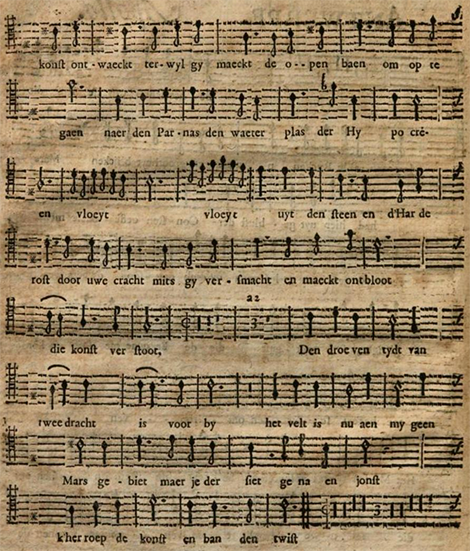 konst ont-waeckt ter-wyl gy maeckt de o--pen baen om op te
gaen naer den Par-nas den waeter plas der Hy po cré-
en vloeyt vloeyt uyt den steen en d'Har de
rost door uwe cracht mits gy ver-smacht en maeckt ontbloot
a 2
3
die konst ver stoot, Den droe ven tydt van
twee dracht is voor by het velt is nu aen my geen
Mars ge-biet maer je der siet ge na en jonst
k'her roep de konst en ban den twist